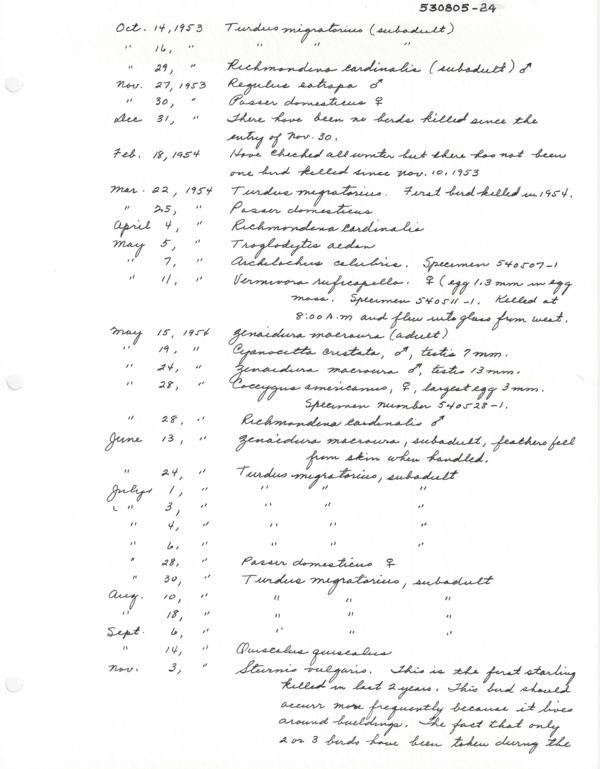 530805-24
Oct. 14, 1953 Turdus migratorius (subadult)
" 16, " " " "
" 29, " Richmondena cardinalis (subadult) ♂
Nov. 27, 1953 Regulus satrapa ♂
" 30, " Passer domesticus ♀
Dec 31, " There have been no birds killed since the
entry of Nov. 30.
Feb. 18, 1954 Have checked all winter but there has not been
one bird killed since Nov. 10, 1953
Mar. 22, 1954 Turdus migratorius. First bird killed in 1954.
" 25, " Passer domesticus
April 4, " Richmondena cardinalis
May 5, " Troglodytis aedon
" 7, " Archilochus colubris. Specimen 540507-1
" 11, " Vermivora ruficapilla. ♀ (egg 1.3 mm in egg
mass. Specimen 540511-1. Killed at
8:00 A.m and flew into glass from west.
May 15, 1954 Zenaidura macroura (adult)
" 19, " Cyanocitta cristata, ♂, testis 7 mm.
" 24, " Zenaidura macroura ♂, testis 13 mm.
" 28, " Coccyzus americanus, ♀, largest egg 3 mm.
Specimen number 540528-1.
" 28, " Richmondena cardinalis ♂
June 13, " Zenaidura macroura, subadult, feathers fell
from skin when handled.
" 24, " Turdus migratorius, subadult
July 1, " " " "
" 3, " " " "
" 4, " " " "
" 6, " " " "
" 28, " Passer domesticus ♀
" 30, " Turdus migratorius, subadult
Aug. 10, " " " "
" 18, " " " "
Sept. 6, " " " "
" 14, " Quiscalus quiscalus
Nov. 3, " Sturnis vulgaris. This is the first starling
killed in last 2 years. This bird should
occurr more frequently because it lives
around buildings. The fact that only
2 or 3 birds have been taken during the